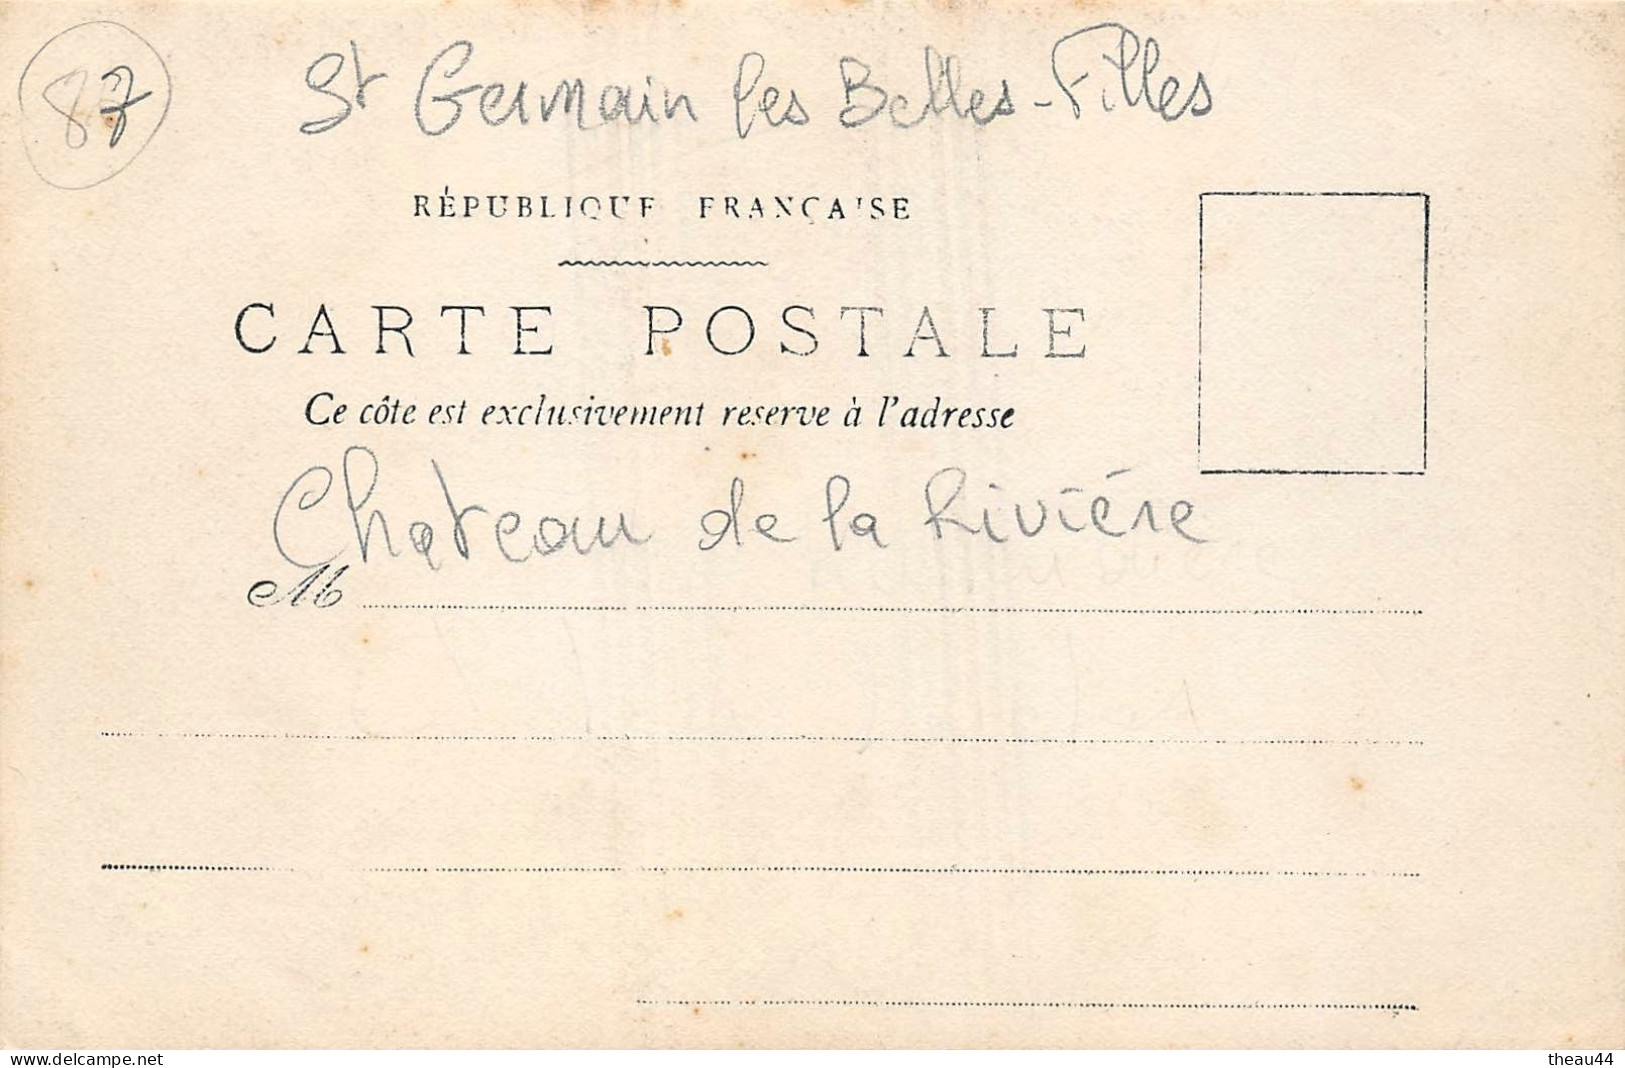 87
St Germain les Belles-Filles
RÉPUBLIQUE FRANÇAISE
CARTE POSTALE
Ce côte est exclusivement reserve à l'adresse
Chateau de la Rivière
M
delcampe.net
theau44